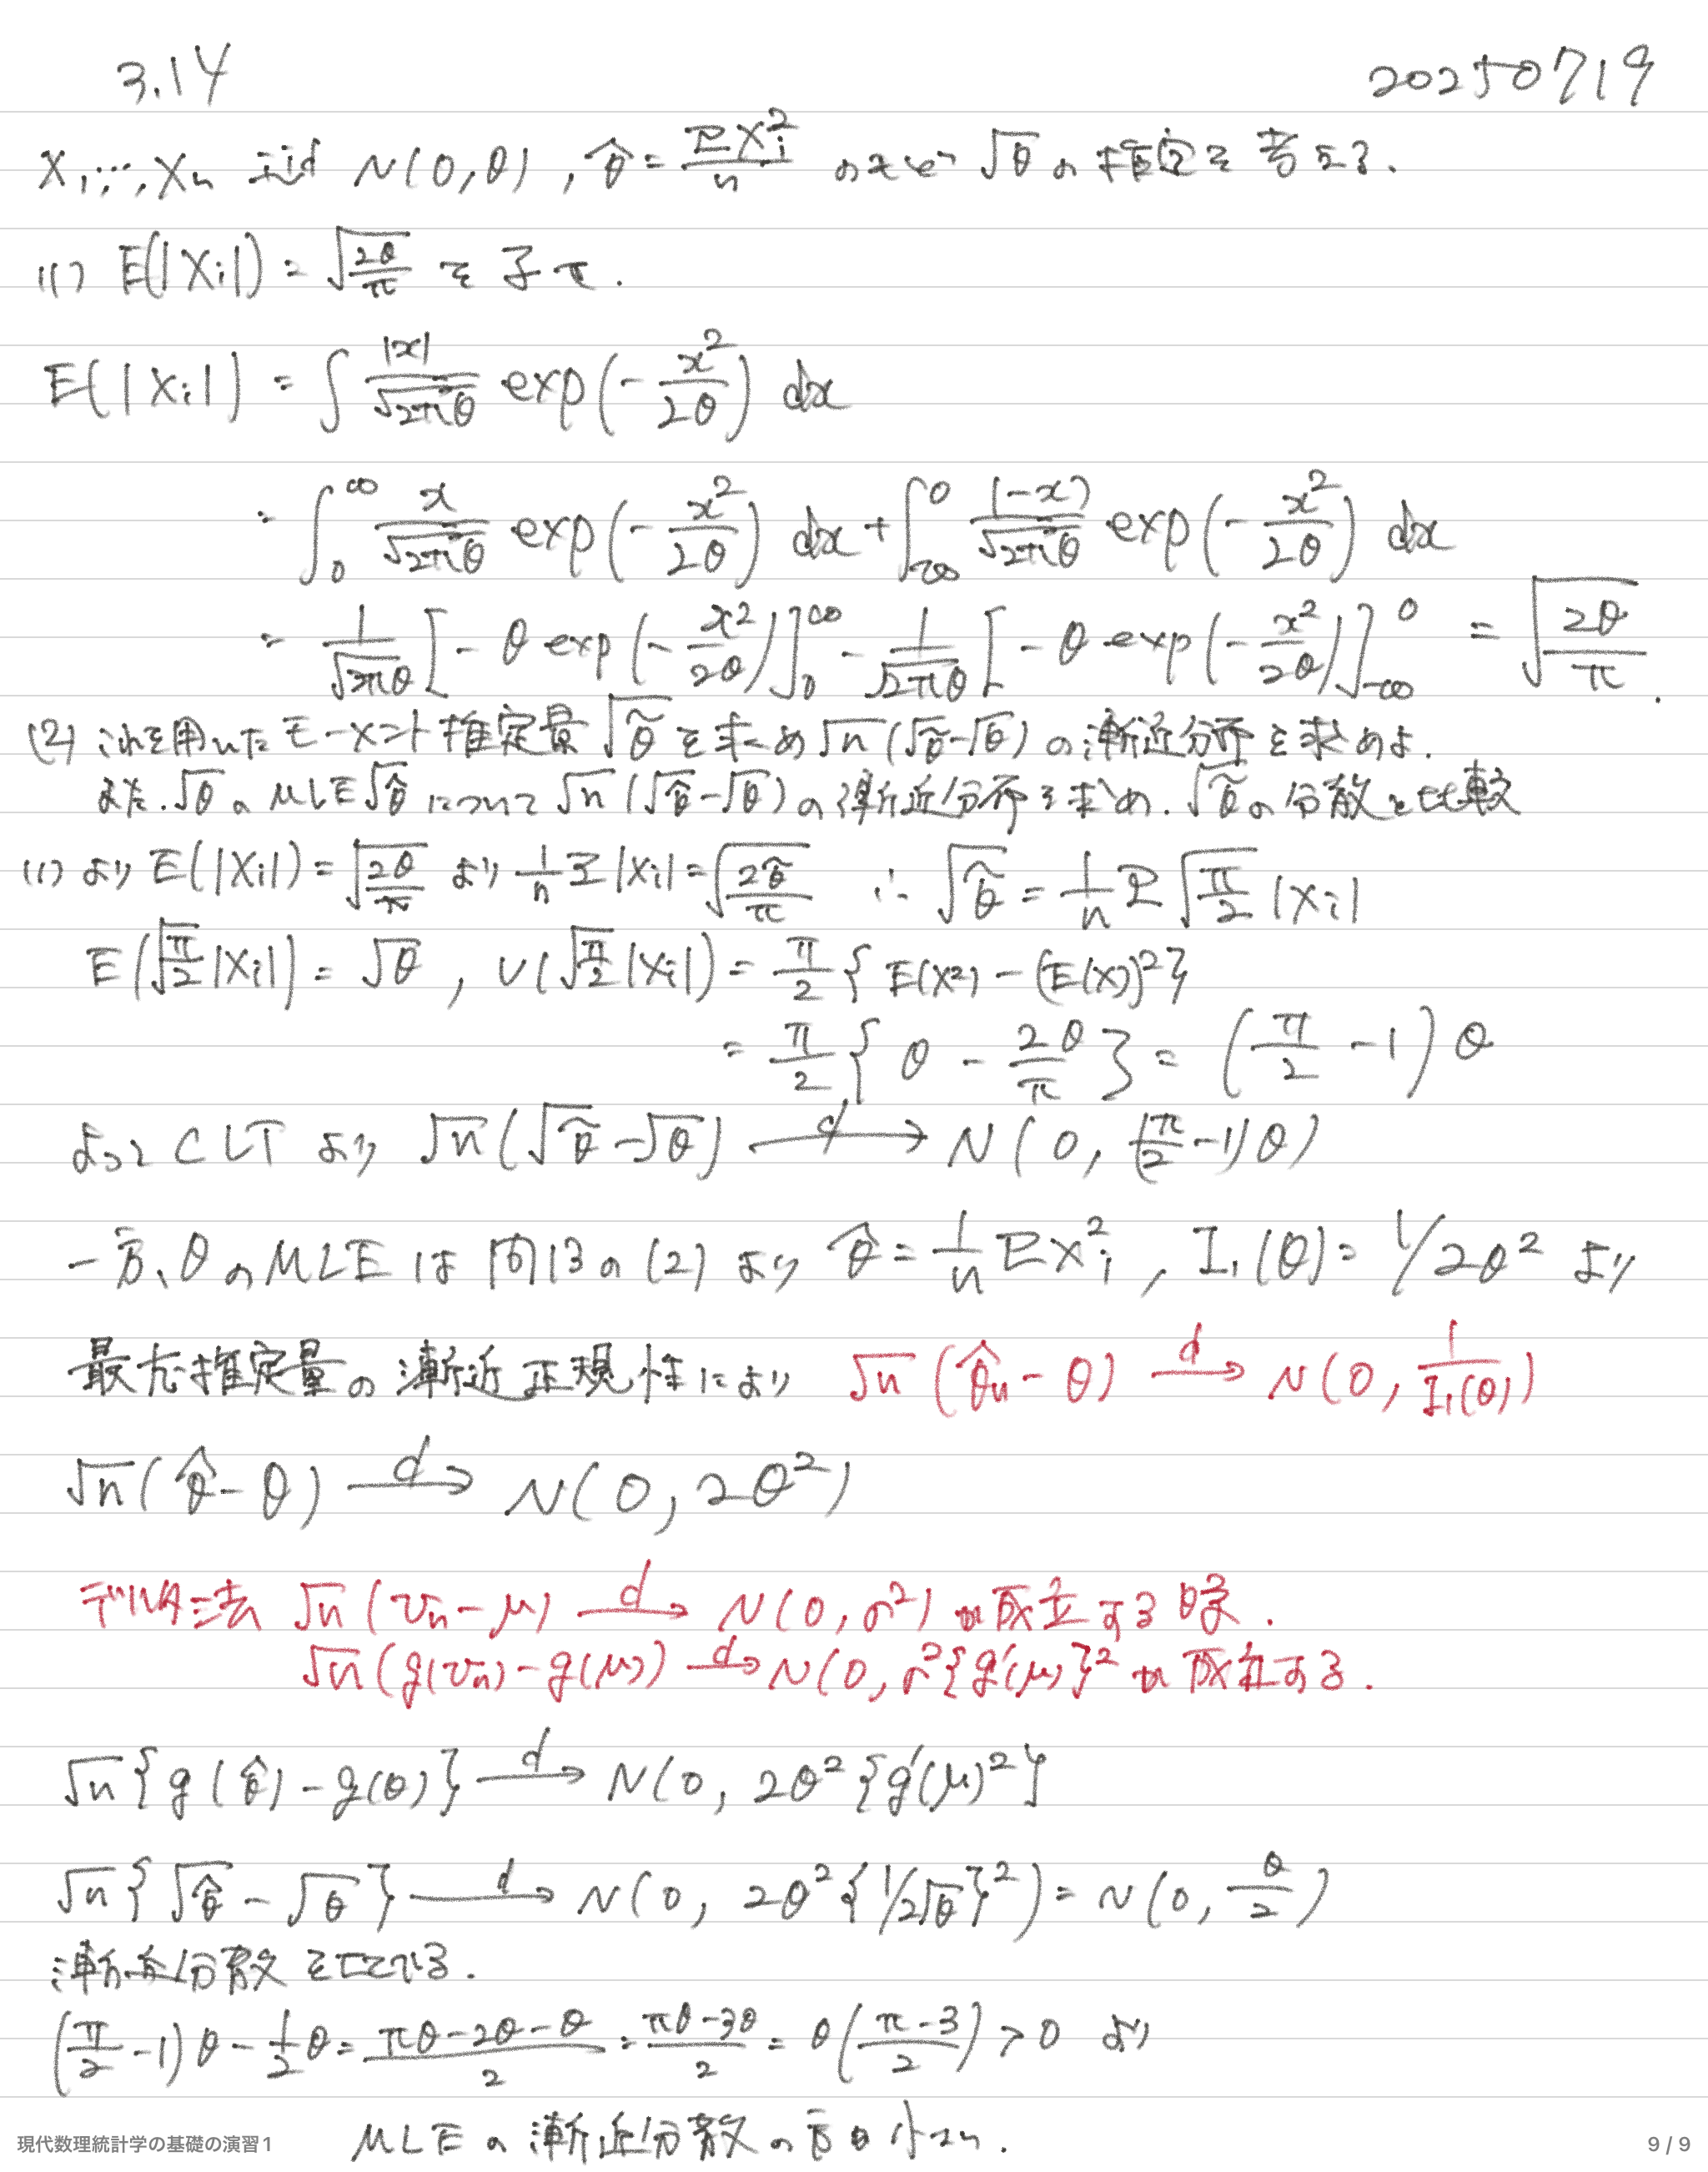 3.14 20250719
X₁, …, Xₙ iid N(0, θ), θ̂ = ΣXᵢ²/n のもとで √θ の推定を考える.
(1) E(|Xᵢ|) = √(2θ/π) を示せ.
E(|Xᵢ|) = ∫ |x|/√(2πθ) exp(-x²/2θ) dx
= ∫₀^∞ x/√(2πθ) exp(-x²/2θ) dx + ∫_{-∞}^0 (-x)/√(2πθ) exp(-x²/2θ) dx
= 1/√(2πθ) [-θ exp(-x²/2θ)]₀^∞ - 1/√(2πθ) [-θ exp(-x²/2θ)]_{-∞}^0 = √(2θ/π).
(2) これを用いたモーメント推定量 √θ̃ を求め √n(√θ̃-√θ) の漸近分布を求めよ.
また. √θ の MLE √θ̂ について √n(√θ̂-√θ) の漸近分布を求め. √θ̃ の分散と比較
(1) より E(|Xᵢ|) = √(2θ/π) より 1/n Σ|Xᵢ| = √(2θ̃/π) ∴ √θ̃ = 1/n Σ √(π/2) |Xᵢ|
E(√(π/2)|Xᵢ|) = √θ, V(√(π/2)|Xᵢ|) = π/2 {E(X²) - (E(X))²}
= π/2 {θ - 2θ/π} = (π/2 - 1)θ
よって CLT より √n(√θ̃-√θ) →d N(0, (π/2-1)θ)
一方、θ の MLE は 問13 の (2) より θ̂ = 1/n ΣXᵢ², I₁(θ) = 1/2θ² より
最尤推定量の漸近正規性により √n(θ̂ₙ - θ) →d N(0, 1/I₁(θ))
√n(θ̂-θ) →d N(0, 2θ²)
デルタ法 √n(Uₙ-μ) →d N(0, σ²) が成立する時.
√n(g(Uₙ)-g(μ)) →d N(0, σ²{g'(μ)}² が成立する.
√n{g(θ̂)-g(θ)} →d N(0, 2θ²{g'(μ)²}
√n{√θ̂-√θ} →d N(0, 2θ²{1/2√θ}²) = N(0, θ/2)
漸近分散を
(π/2-1)θ - 1/2 θ = (πθ-2θ-θ)/2 = (πθ-3θ)/2 = θ((π-3)/2) > 0 より
MLE の漸近分散の方が小さい.
現代数理統計学の基礎の演習1 9 / 9